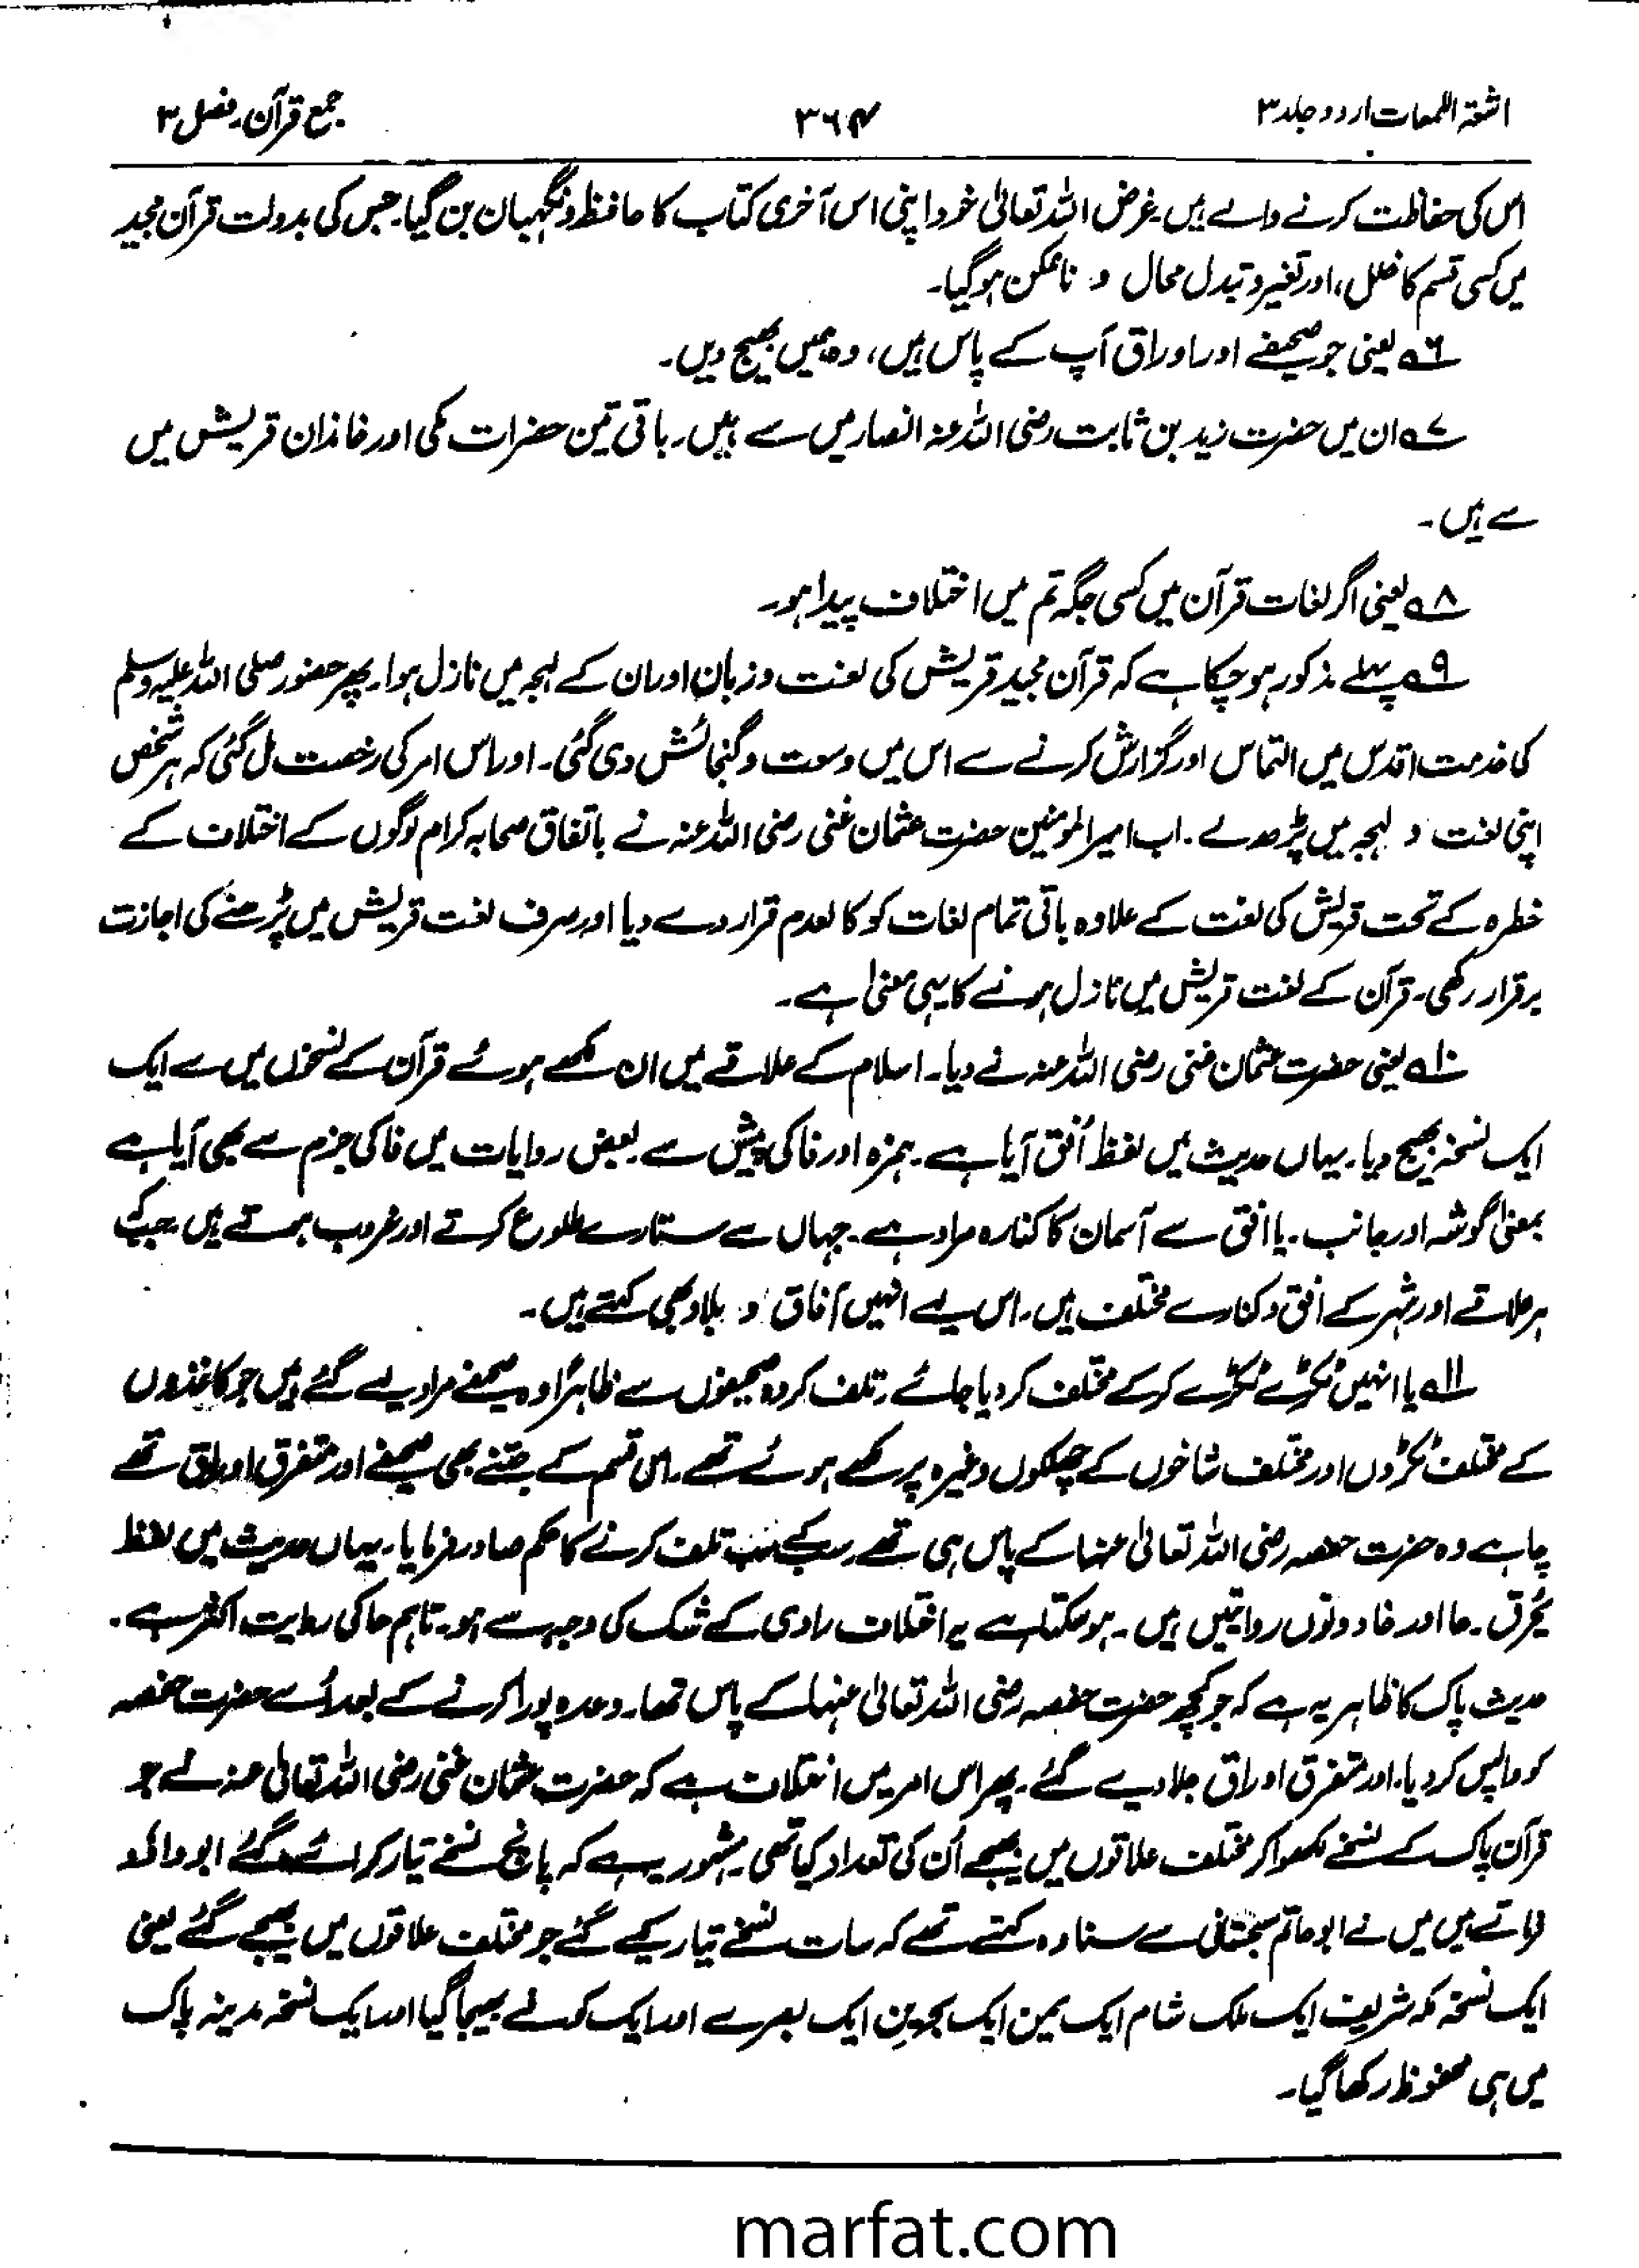 اشعۃ اللمعات اردو جلد ۳
۳۶۴
جمع قرآن۔ فصل ۳
اس کی حفاظت کرنے والے ہیں۔ غرض اللہ تعالیٰ خود اپنی اس آخری کتاب کا حافظ و نگہبان بن گیا۔ جس کی بدولت قرآن مجید
میں کسی قسم کا خلل، اور تغیر و تبدل محال و ناممکن ہوگیا۔
۶ یعنی جو صحیفے اور اوراق آپ کے پاس ہیں، وہ ہمیں بھیج دیں۔
۷ ان میں حضرت زید بن ثابت رضی اللہ عنہ انصار میں سے ہیں۔ باقی تین حضرات مکی اور خاندان قریش میں
سے ہیں۔
۸ یعنی اگر لغات قرآن میں کسی جگہ تم میں اختلاف پیدا ہو۔
۹ پہلے مذکور ہو چکا ہے کہ قرآن مجید قریش کی لغت و زبان اور ان کے لہجہ میں نازل ہوا۔ پھر حضور صلی اللہ علیہ وسلم
کی خدمت اقدس میں التماس اور گزارش کرنے سے اس میں وسعت و گنجائش دی گئی۔ اور اس امر کی رخصت مل گئی کہ ہر شخص
اپنی لغت و لہجہ میں پڑھ لے۔ اب امیر المؤمنین حضرت عثمان غنی رضی اللہ عنہ نے باتفاق صحابہ کرام لوگوں کے اختلاف کے
خطرہ کے تحت قریش کی لغت کے علاوہ باقی تمام لغات کو کالعدم قرار دے دیا اور صرف لغت قریش میں پڑھنے کی اجازت
برقرار رکھی۔ قرآن کے لغت قریش میں نازل ہونے کا یہی معنیٰ ہے۔
۱۰ یعنی حضرت عثمان غنی رضی اللہ عنہ نے دیا۔ اسلام کے علاقے میں ان لکھے ہوئے قرآن کے نسخوں میں سے ایک
ایک نسخہ بھیج دیا۔ یہاں حدیث میں لفظ اُفق آیا ہے۔ ہمزہ اور فا کی پیش سے بعض روایات میں فا کی جزم سے بھی آیا ہے
بمعنیٰ گوشہ اور جانب۔ یا افق سے آسمان کا کنارہ مراد ہے۔ جہاں سے ستارے طلوع کرتے اور غروب ہوتے ہیں جبکہ
ہر علاقے اور شہر کے افق و کنارے مختلف ہیں۔ اس لیے انہیں آفاق و بلاد بھی کہتے ہیں۔
۱۱ یا انہیں ٹکڑے ٹکڑے کرکے مختلف کر دیا جائے۔ تلف کردہ صحیفوں سے ظاہراً وہ صحیفے مراد لیے گئے ہیں جو کاغذوں
کے مختلف ٹکڑوں اور مختلف شاخوں کے چھلکوں وغیرہ پر لکھے ہوئے تھے۔ اس قسم کے جتنے بھی صحیفے اور متفرق اوراق تھے
چاہے وہ حضرت حفصہ رضی اللہ تعالیٰ عنہا کے پاس ہی تھے سب کے سب تلف کرنے کا حکم صادر فرمایا۔ یہاں حدیث میں لفظ
یُحرق۔ حا اور خا دونوں روایتیں ہیں۔ ہو سکتا ہے یہ اختلاف راوی کے شک کی وجہ سے ہو۔ تاہم حا کی روایت اکثر ہے۔
حدیث پاک کا ظاہر یہ ہے کہ جو کچھ حضرت حفصہ رضی اللہ تعالیٰ عنہا کے پاس تھا۔ وعدہ پورا کرنے کے بعد اُسے حضرت حفصہ
کو واپس کر دیا، اور متفرق اوراق جلا دیے گئے۔ پھر اس امر میں اختلاف ہے کہ حضرت عثمان غنی رضی اللہ تعالیٰ عنہ نے جو
قرآن پاک کے نسخے لکھوا کر مختلف علاقوں میں بھیجے اُن کی تعداد کیا تھی۔ مشہور یہ ہے کہ پانچ نسخے تیار کرائے گئے ابو داؤد
فرماتے ہیں میں نے ابو حاتم سجستانی سے سنا وہ کہتے تھے کہ سات نسخے تیار کیے گئے جو مختلف علاقوں میں بھیجے گئے یعنی
ایک نسخہ مکہ شریف ایک ملک شام ایک یمن ایک بحرین ایک بصرے اور ایک کوفے بھیجا گیا اور ایک نسخہ مدینہ پاک
میں ہی محفوظ رکھا گیا۔
marfat.com